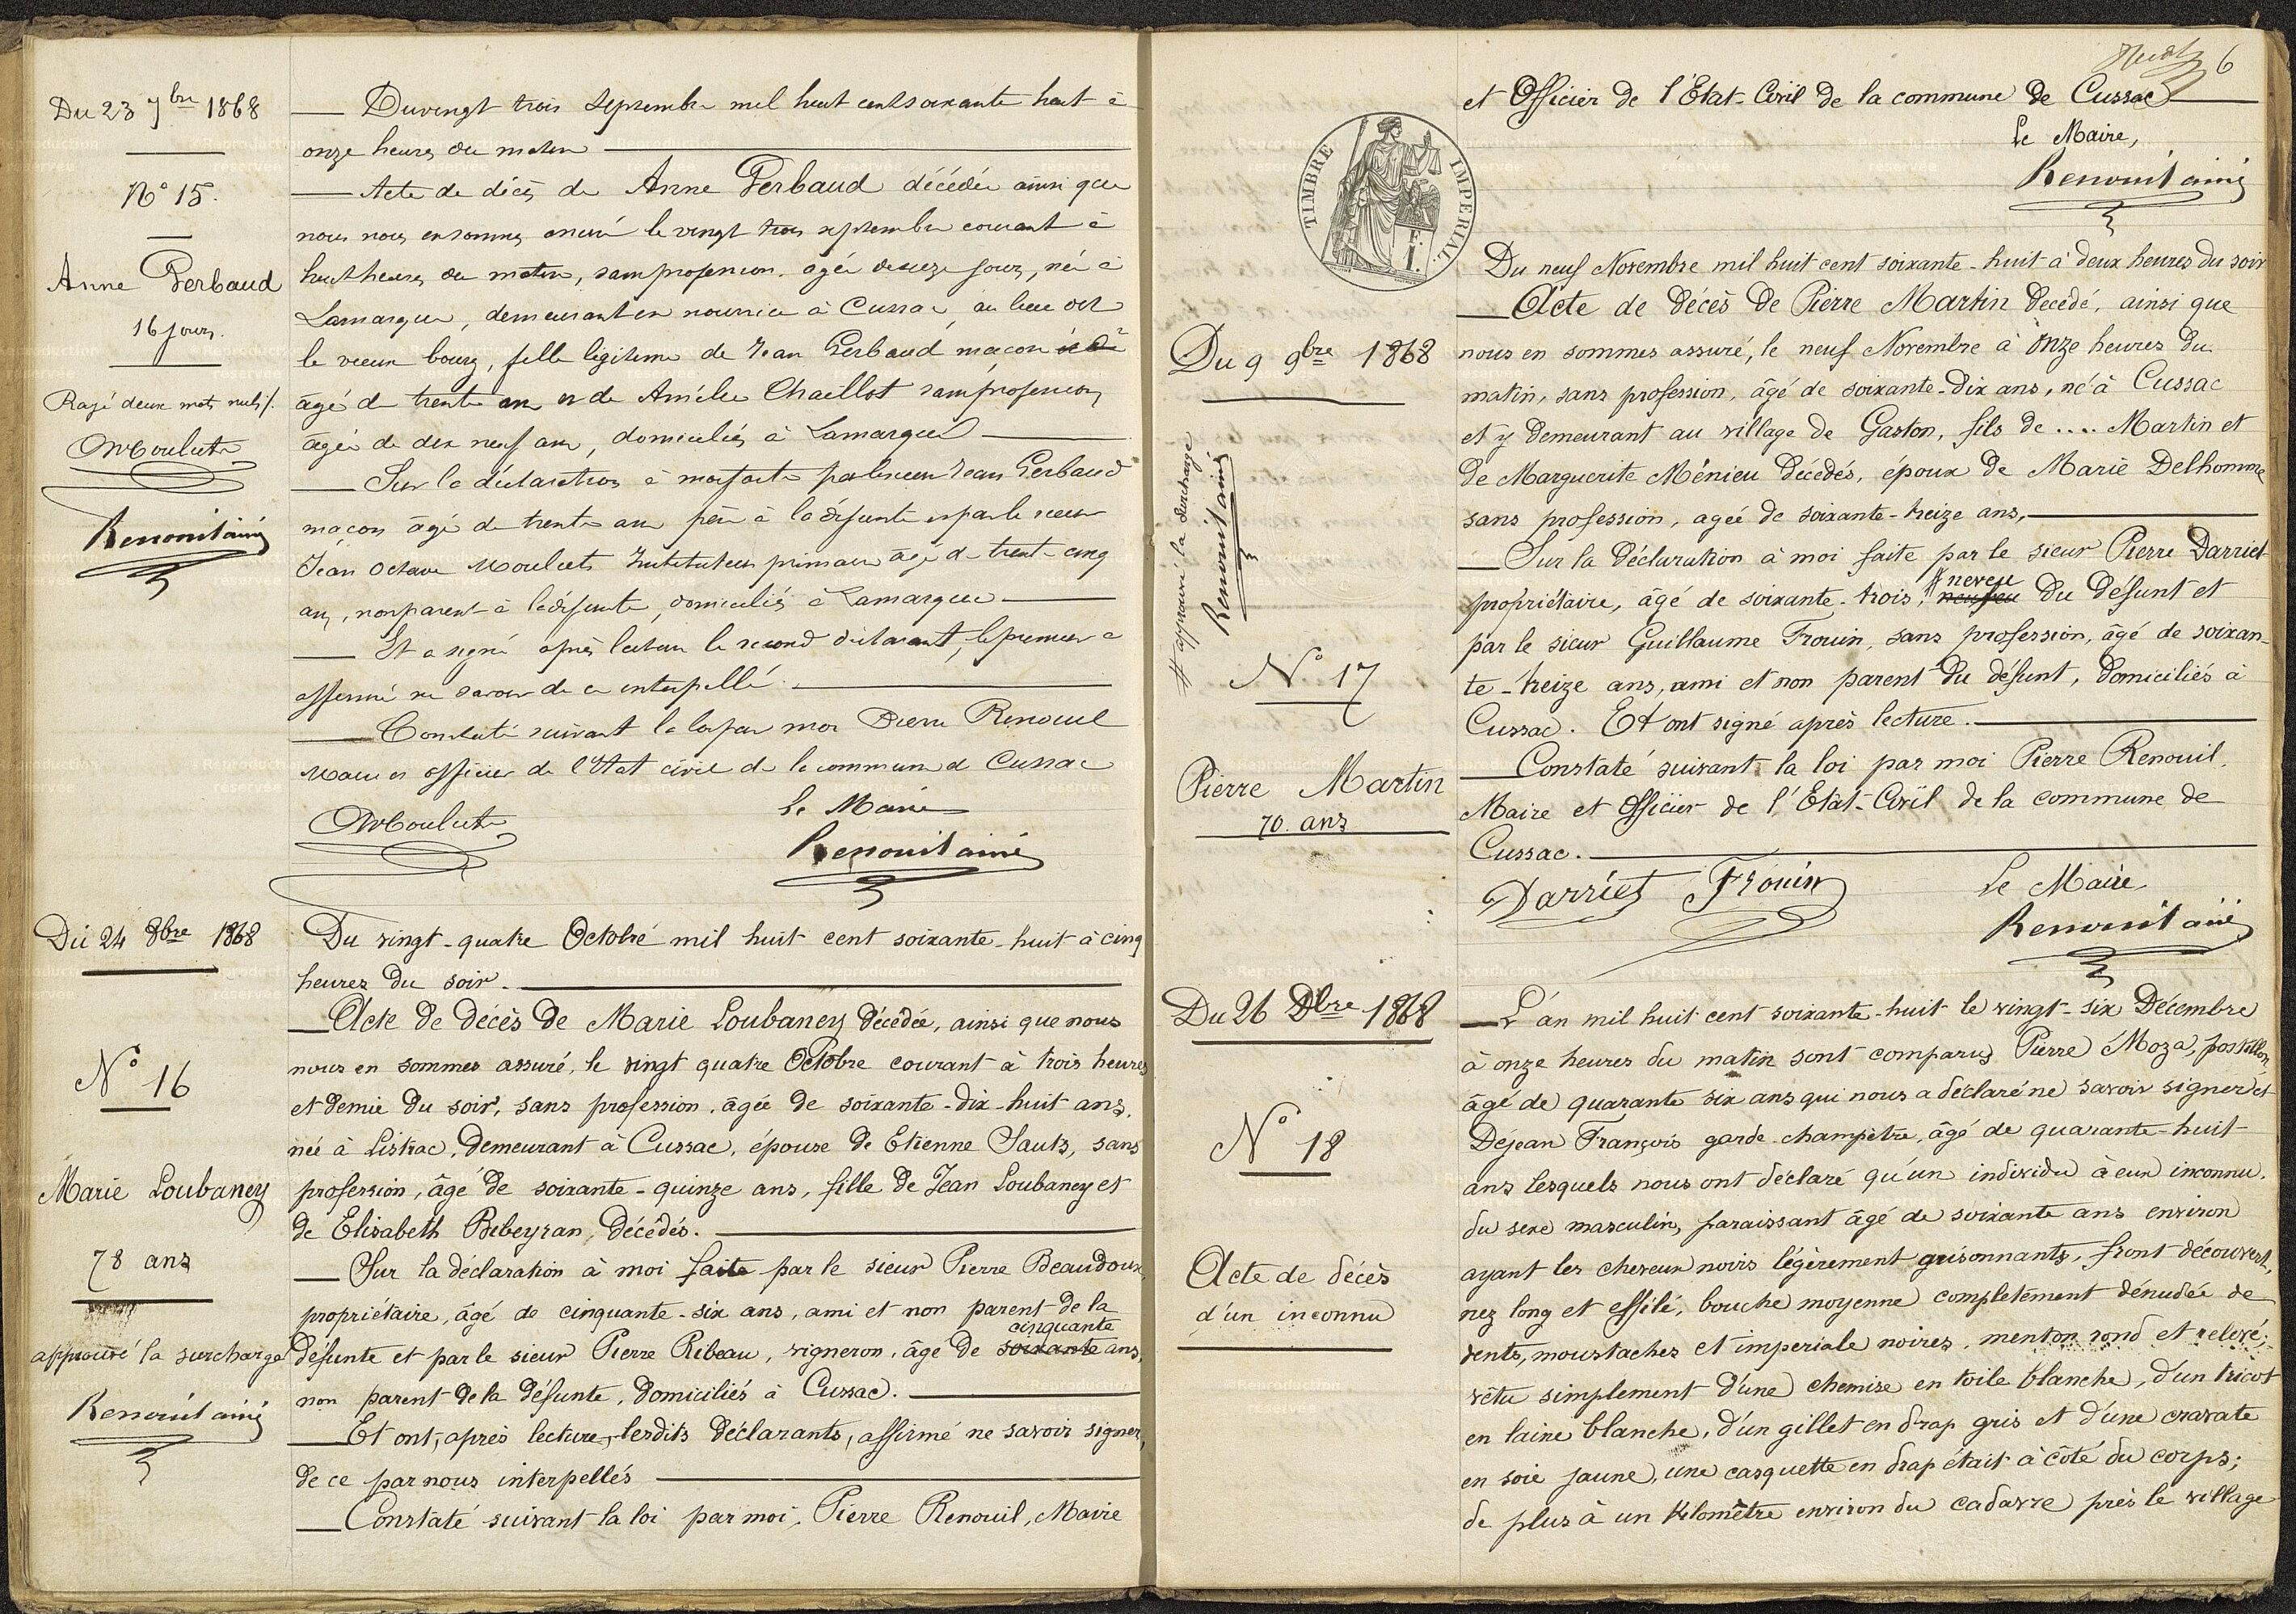 Du 23 7bre 1868
N° 15.
Anne Gerbaud
16 jours.
Rayé deux mots nuls /.
OMoulut
Renouil ainé
Du vingt trois Septembre mil huit cent soixante huit à
onze heures du matin
Acte de décès de Anne Gerbaud décédée ainsi que
nous nous en sommes assuré le vingt trois septembre courant à
huit heures du matin, sans profession, agée de seize jours, née à
Lamarque, demeurant en nourrice à Cussac, au lieu dit
le vieux bourg, fille légitime de Jean Gerbaud maçon
âgé de trente ans et de Amélie Chaillot sans profession,
âgée de dix neuf ans, domiciliés à Lamarque
Sur la déclaration à moi faite par le sieur Jean Gerbaud
maçon âgé de trente ans père à la défunte et par le sieur
Jean Octave Moulut Instituteur primaire âgé de trente-cinq
ans, non parent à la défunte, domiciliés à Lamarque
Et a signé après lecture le second déclarant, le premier a
affirmé ne savoir de ce interpellé.
Constaté suivant la loi par moi Pierre Renouil
Maire et officier de l'Etat civil de la commune de Cussac
OMoulut
Le Maire
Renouil ainé
Du 24 8bre 1868
N° 16
Marie Loubaney
78 ans
approuvé la surcharge
Renouil ainé
Du vingt-quatre Octobre mil huit cent soixante-huit à cinq
heures du soir.
Acte de décès de Marie Loubaney décédée, ainsi que nous
nous en sommes assuré, le vingt quatre Octobre courant à trois heures
et demie du soir, sans profession, âgée de soixante-dix-huit ans,
née à Listrac, demeurant à Cussac, épouse de Etienne Sauts, sans
profession, âgé de soixante-quinze ans, fille de Jean Loubaney et
de Elisabeth Bibeyran, décédés.
Sur la déclaration à moi faite par le sieur Pierre Beaudoux,
propriétaire, âgé de cinquante-six ans, ami et non parent de la
cinquante
défunte et par le sieur Pierre Ribeau, vigneron, âgé de soixante ans,
non parent de la défunte, domiciliés à Cussac.
Et ont, après lecture, lesdits déclarants, affirmé ne savoir signer,
de ce par nous interpellés
Constaté suivant la loi par moi, Pierre Renouil, Maire
6
et Officier de l'Etat-Civil de la commune de Cussac
Le Maire,
Renouil ainé
TIMBRE IMPERIAL
Du 9 9bre 1868
# approuvé la surcharge
Renouil ainé
N° 17
Pierre Martin
70 ans
Du neuf Novembre mil huit cent soixante-huit à deux heures du soir
Acte de décès de Pierre Martin décédé, ainsi que
nous en sommes assuré, le neuf Novembre à onze heures du
matin, sans profession, âgé de soixante-dix ans, né à Cussac
et y demeurant au village de Gaston, fils de .... Martin et
de Marguerite Ménieu décédés, époux de Marie Delhomme
sans profession, agée de soixante-treize ans,
Sur la déclaration à moi faite par le sieur Pierre Darriet
# neveu
propriétaire, âgé de soixante-trois, du défunt et
par le sieur Guillaume Frouin, sans profession, âgé de soixan-
te-treize ans, ami et non parent du défunt, domiciliés à
Cussac. Et ont signé après lecture.
Constaté suivant la loi par moi Pierre Renouil,
Maire et Officier de l'Etat-Civil de la commune de
Cussac.
Darriet Frouin
Le Maire
Renouil ainé
Du 26 Dbre 1868
N° 18
Acte de décès
d'un inconnu
L'an mil huit cent soixante-huit le vingt-six Décembre
à onze heures du matin sont comparus Pierre Moza, postillon,
âgé de quarante six ans qui nous a déclaré ne savoir signer et
Dejean François garde-champêtre, âgé de quarante-huit
ans lesquels nous ont déclaré qu'un individu à eux inconnu,
du sexe masculin, paraissant âgé de soixante ans environ
ayant les cheveux noirs légèrement grisonnants, front découvert,
nez long et effilé, bouche moyenne complètement dénudée de
dents, moustaches et imperiale noires, menton rond et relevé;
vêtu simplement d'une chemise en toile blanche, d'un tricot
en laine blanche, d'un gillet en drap gris et d'une cravate
en soie jaune, une casquette en drap était à côté du corps;
de plus à un kilomètre environ du cadavre près le village